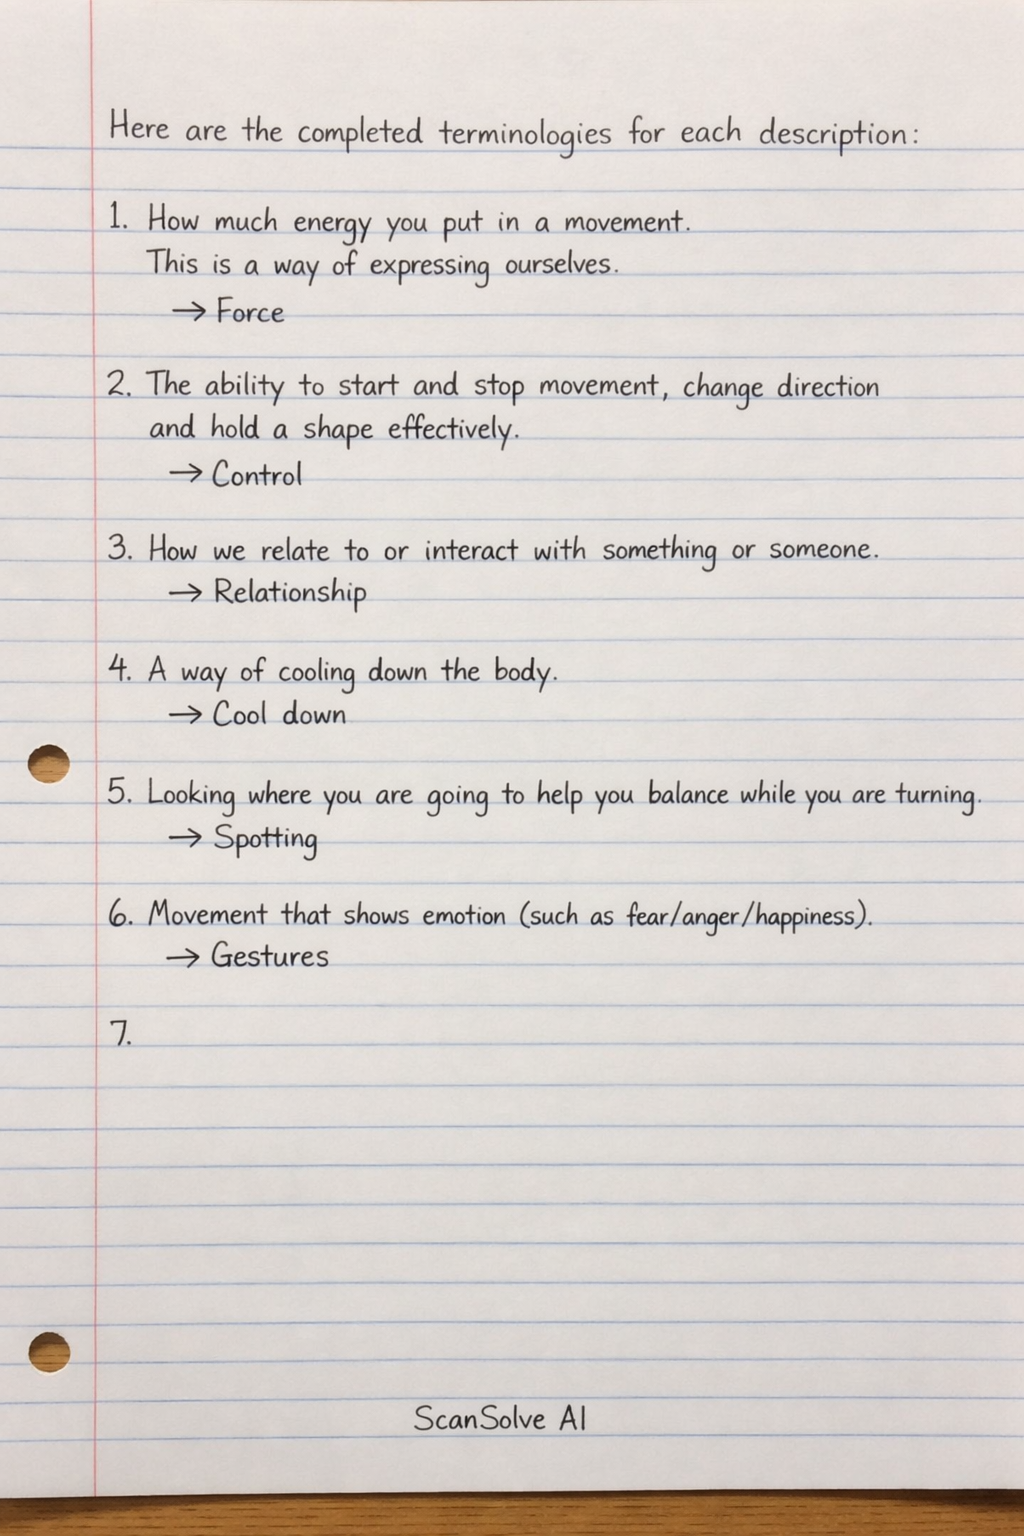 Here are the completed terminologies for each description:
1. How much energy you put in a movement.
This is a way of expressing ourselves.
→ Force
2. The ability to start and stop movement, change direction
and hold a shape effectively.
→ Control
3. How we relate to or interact with something or someone.
→ Relationship
4. A way of cooling down the body.
→ Cool down
5. Looking where you are going to help you balance while you are turning.
→ Spotting
6. Movement that shows emotion (such as fear/anger/happiness).
→ Gestures
7.
ScanSolve AI